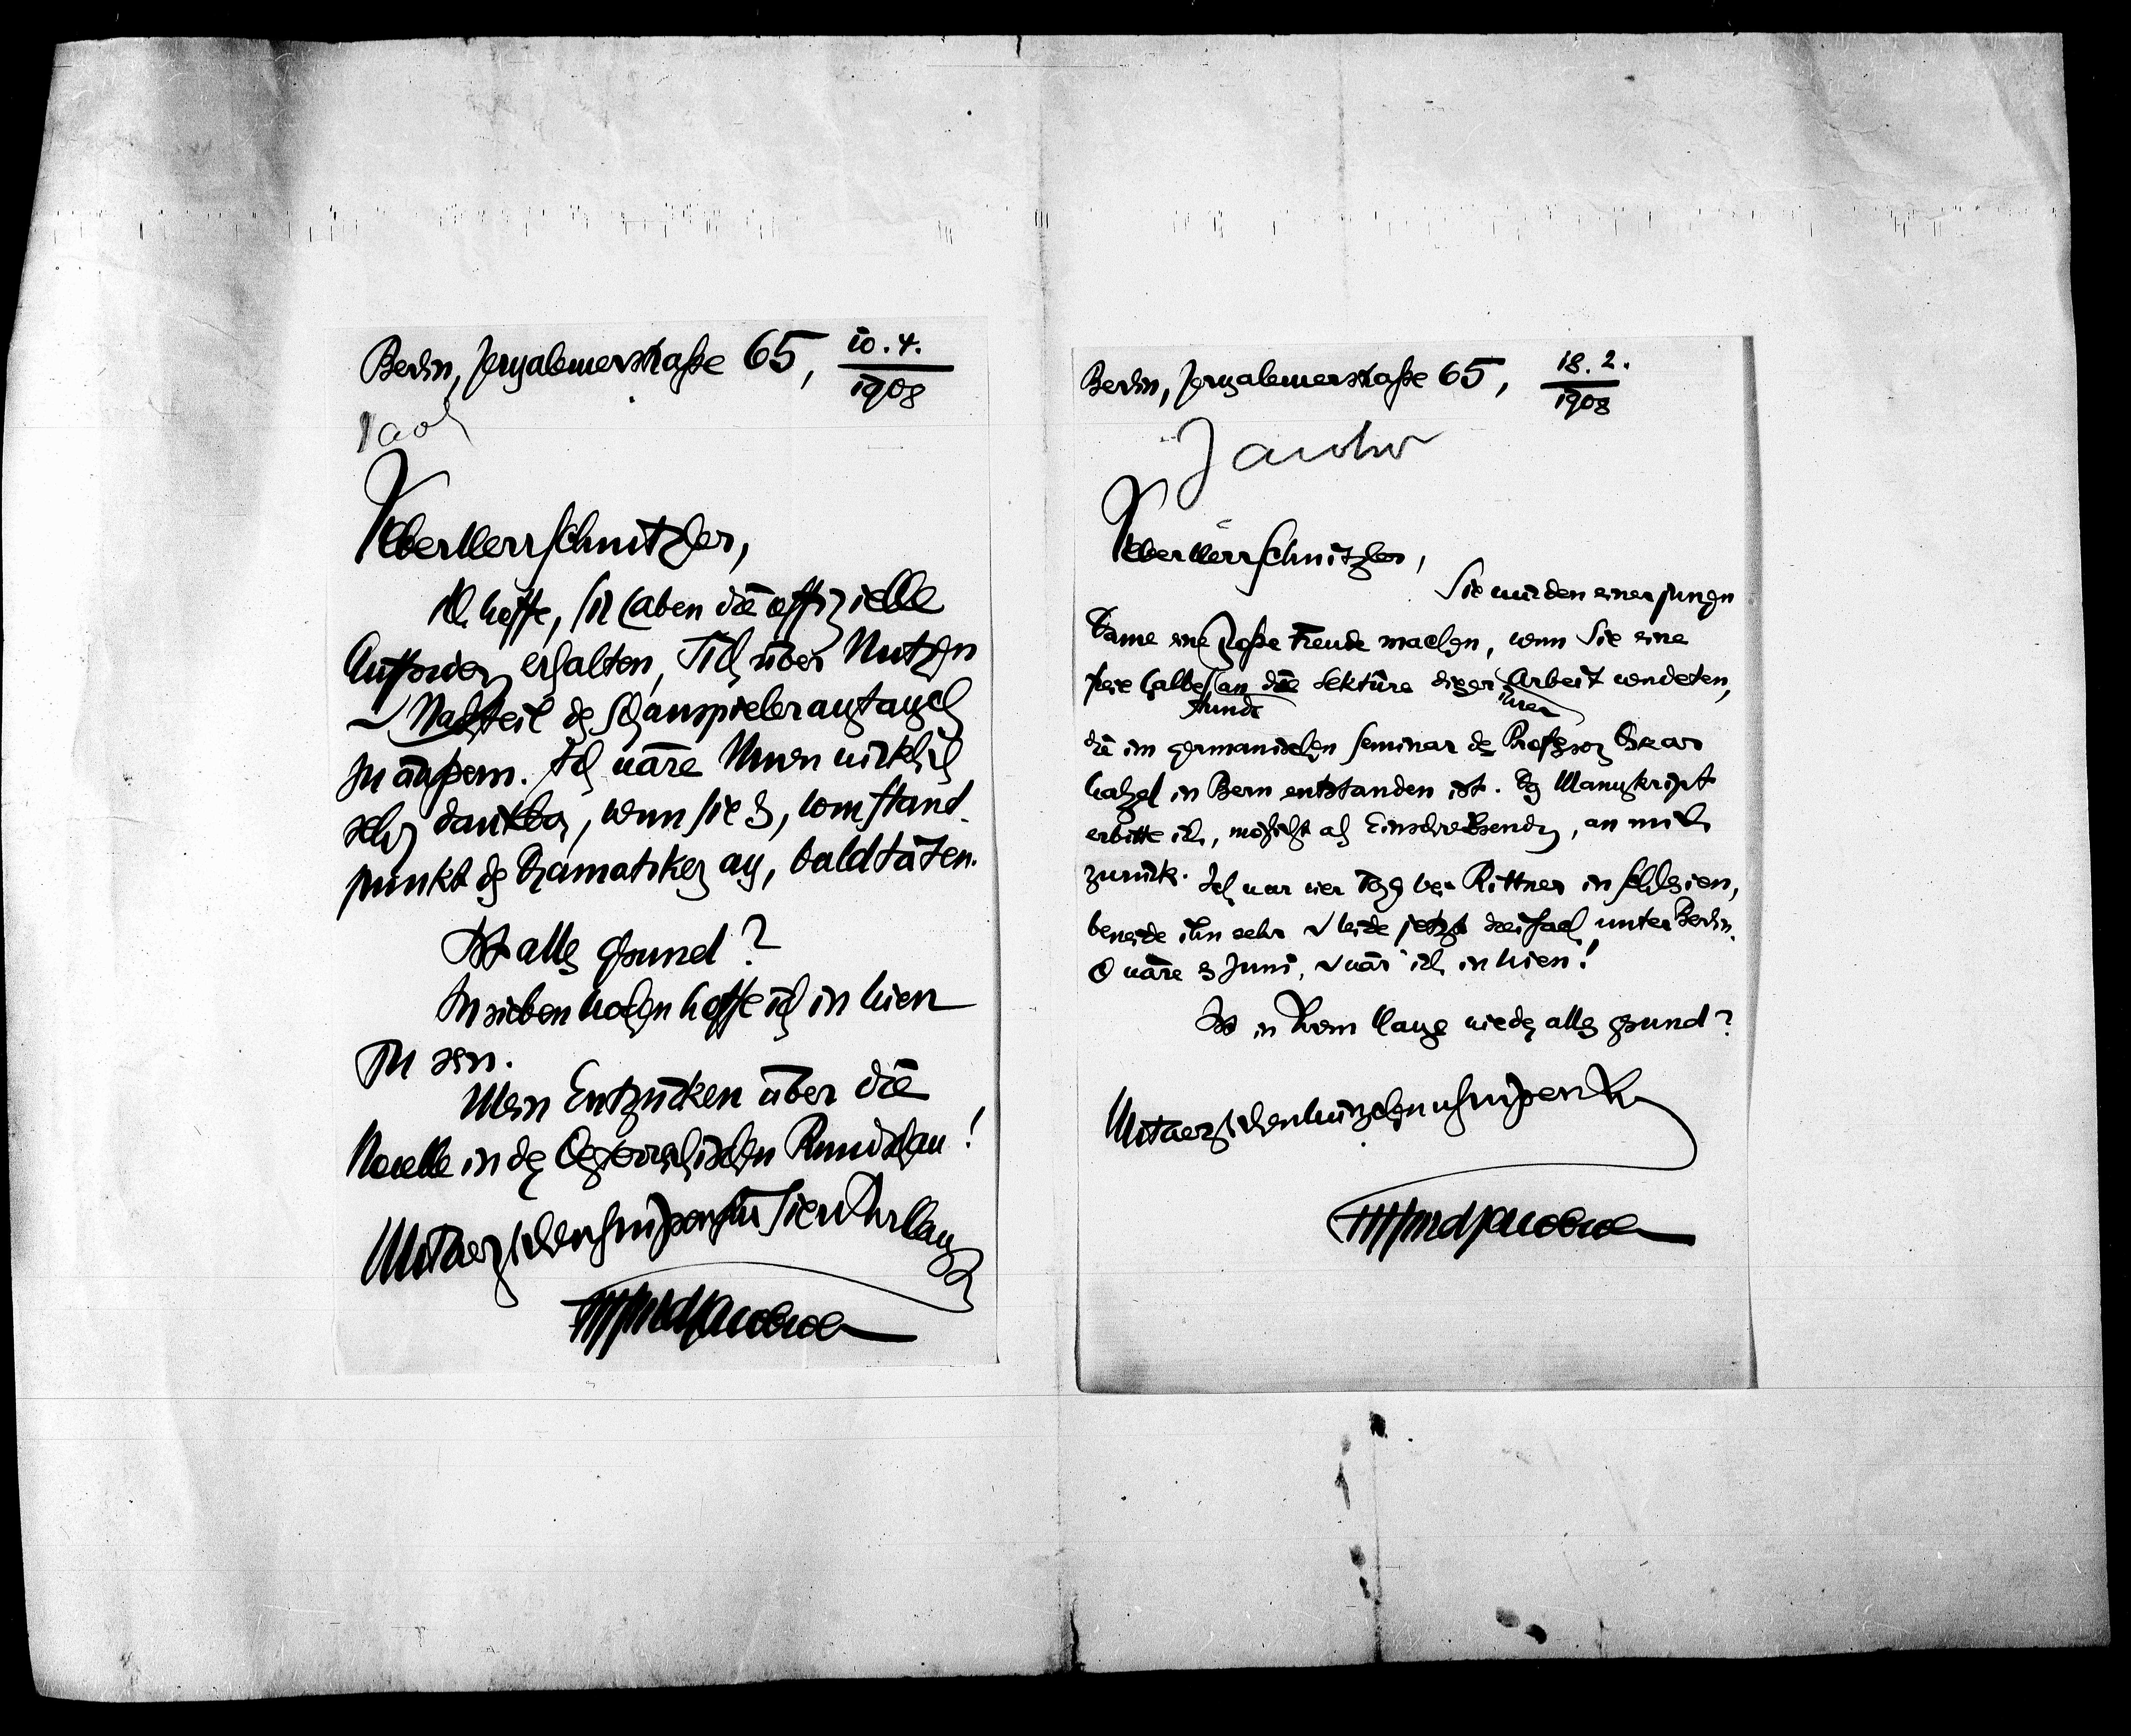 Berlin, Jerusalemerstraße 65, 10. 4.
1908
Jac
Lieber Herr Schnitzler,
Ich hoffe, Sie haben die offizielle
Aufforderung erhalten, Sich über Nutzen
u Nachteil des Schauspieleraustausch
zu äußern. Ich wäre Ihnen wirklich
sehr dankbar, wenn Sie es, vom Stand-
punkt des Dramatikers aus, bald täten.
Ist alles gesund?
In sieben Wochen hoffe ich in Wien
zu sein.
Mein Entzücken über die
Novelle in der Oesterreichischen Rundschau!
Mit herzlichen Grüßen für Sie u Ihr Haus
Ihr
Siegfried Jacobsohn
Berlin, Jerusalemerstraße 65, 18. 2.
1908
Jacobs
Lieber Herr Schnitzler,
Sie würden einer jungen
Dame eine große Freude machen, wenn Sie eine
freie halbe Stunde an die Lektüre dieser ihrer Arbeit wendeten,
die im germanischen Seminar des Professor Oskar
Walzel in Bern entstanden ist. Das Manuskript
erbitte ich, möglichst als Einschreibsendung, an mich
zurück. Ich war vier Tage bei Rittner in Schlesien,
beneide ihn sehr u leide jetzt dreifach unter Berlin.
O wäre es Juni, u wär' ich in Wien!
Ist in Ihrem Hause wieder alles gesund?
Mit herzlichen Wünschen u Grüßen Ihr
Siegfried Jacobsohn